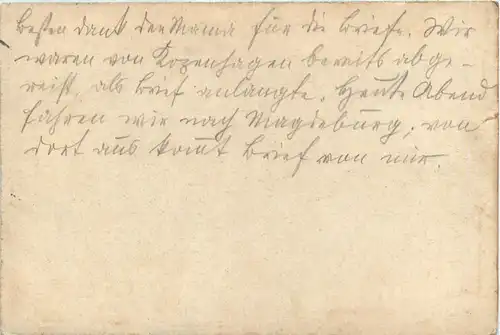 Besten Dank der Mama für die Briefe. Wir
waren von Kopenhagen bereits abge-
reist, als Brief anlangte. Heute Abend
fahren wir nach Magdeburg, von
dort aus kommt Brief von mir.